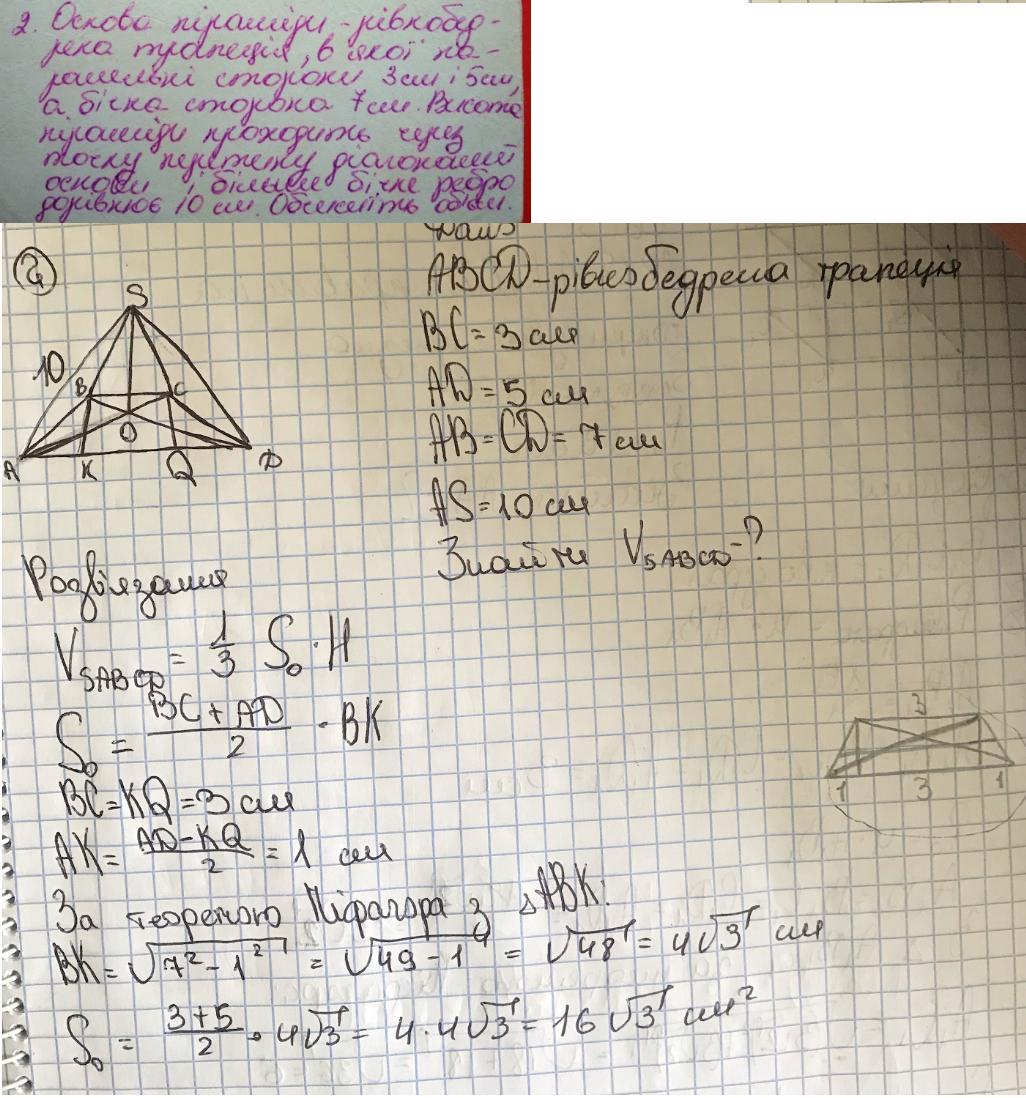 2. Основа піраміди - рівнобед-
рена трапеція, в якої па-
ралельні сторони 3см і 5см,
а бічна сторона 7 см. Висота
піраміди проходить через
точку перетину діагоналей
основи і більше бічне ребро
дорівнює 10 см. Обчисліть об'єм.
2
ABCD - рівнобедрена трапеція
BC = 3 см
AD = 5 см
AB = CD = 7 см
AS = 10 см
Знайти V_SABCD - ?
S
10
B C
O
A K Q D
Розв'язання
V_SABCD = 1/3 S₀ · H
S₀ = (BC + AD)/2 · BK
BC = KQ = 3 см
AK = (AD - KQ)/2 = 1 см
За теоремою Піфагора з △ABK:
BK = √(7² - 1²) = √(49 - 1) = √48 = 4√3 см
S₀ = (3+5)/2 · 4√3 = 4 · 4√3 = 16√3 см²
3
1 3 1